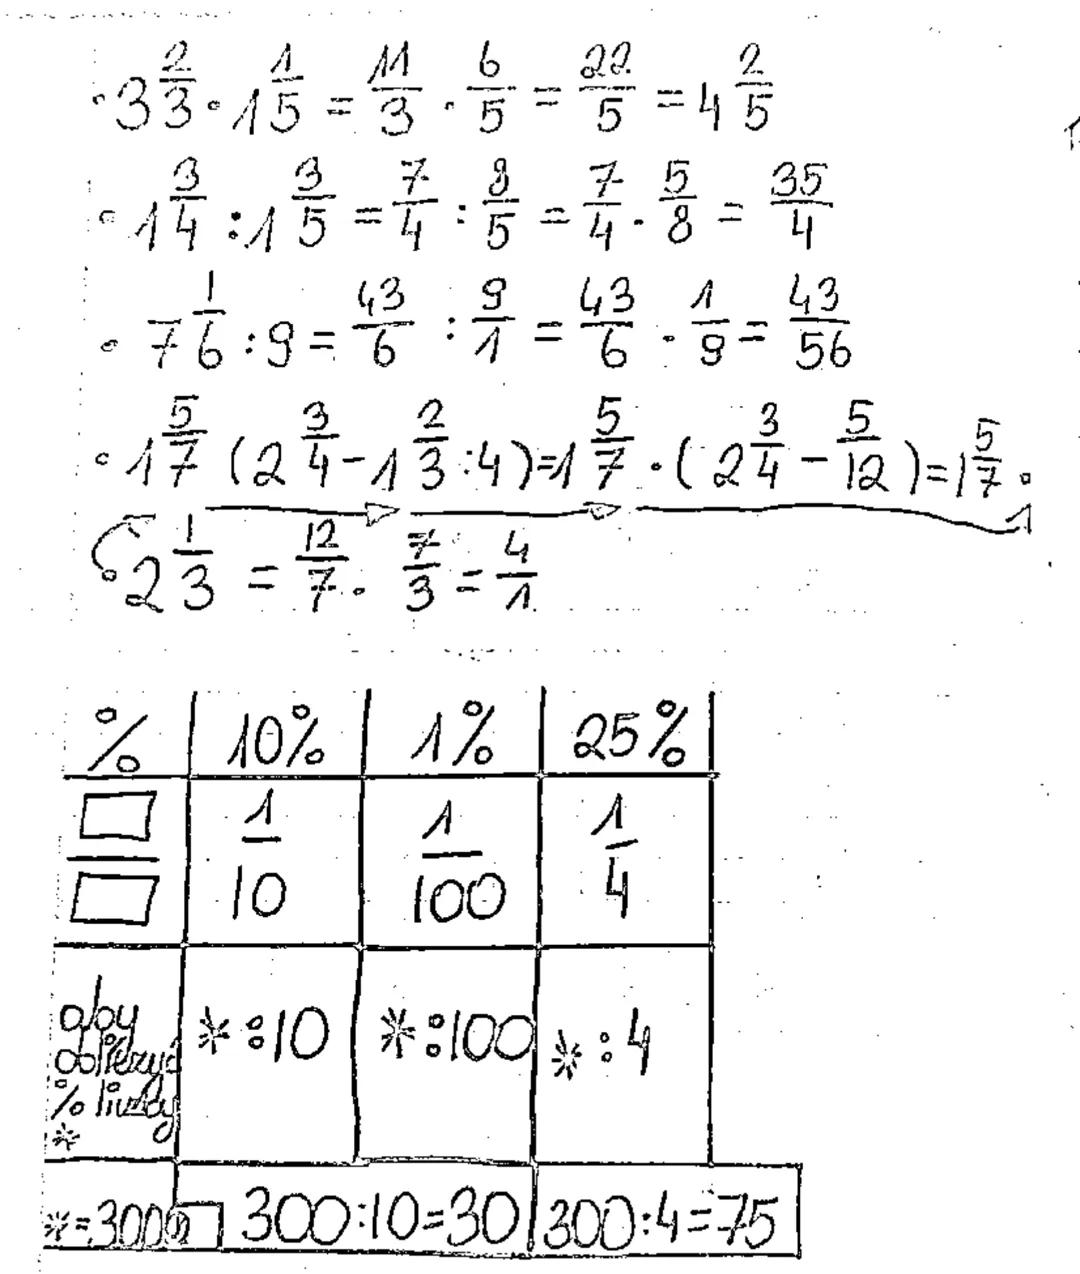 • 3 2/3 · 1 1/5 = 11/3 · 6/5 = 22/5 = 4 2/5
• 1 3/4 : 1 3/5 = 7/4 : 8/5 = 7/4 · 5/8 = 35/4
• 7 1/6 : 9 = 43/6 : 9/1 = 43/6 · 1/9 = 43/56
• 1 5/7 (2 3/4 - 1 2/3 : 4) = 1 5/7 · (2 3/4 - 5/12) = 1 5/7 ·
• 2 1/3 = 12/7 · 7/3 = 4/1
% 10% 1% 25%
□/□ 1/10 1/100 1/4
aby
obliczyć
% liczby
*
*:10 *:100 *:4
*=300 300:10=30 300:4=75